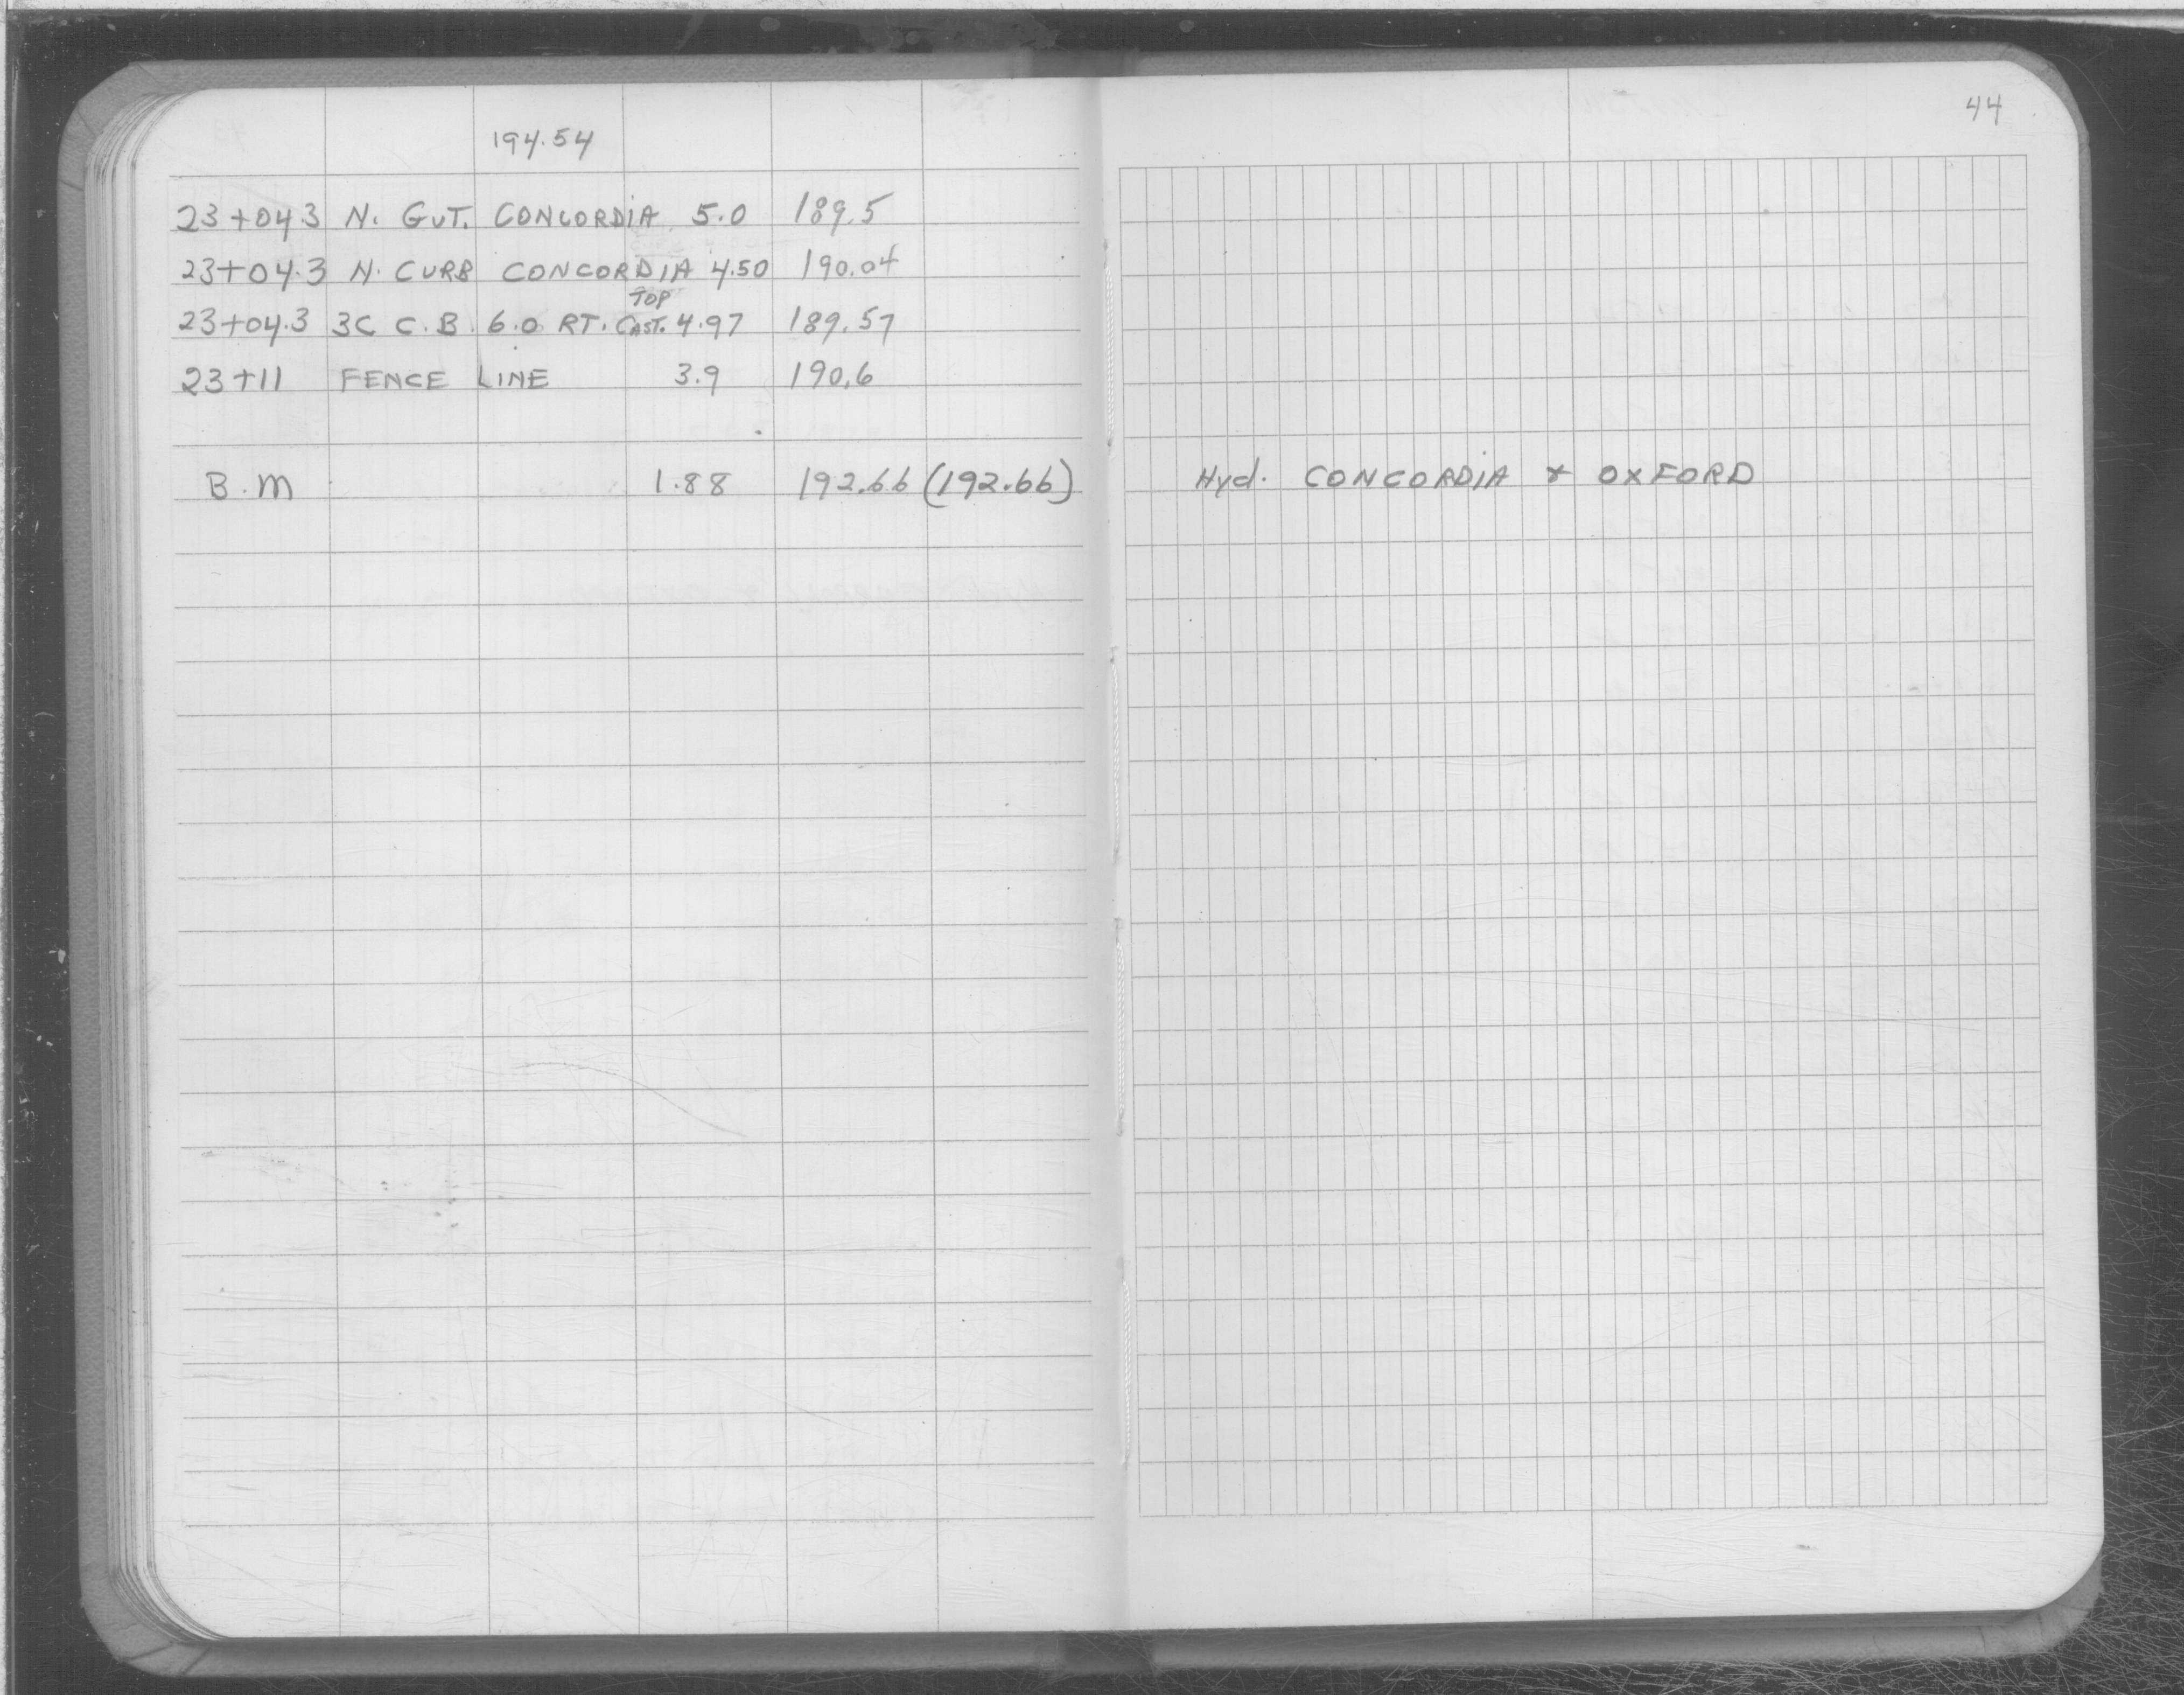 44
194.54
23+04.3 N. GUT. CONCORDIA 5.0 189.5
23+04.3 N. CURB CONCORDIA 4.50 190.04
TOP
23+04.3 3C C.B. 6.0 RT. CAST. 4.97 189.57
23+11 FENCE LINE 3.9 190.6
B.M 1.88 192.66 (192.66) Hyd. CONCORDIA & OXFORD